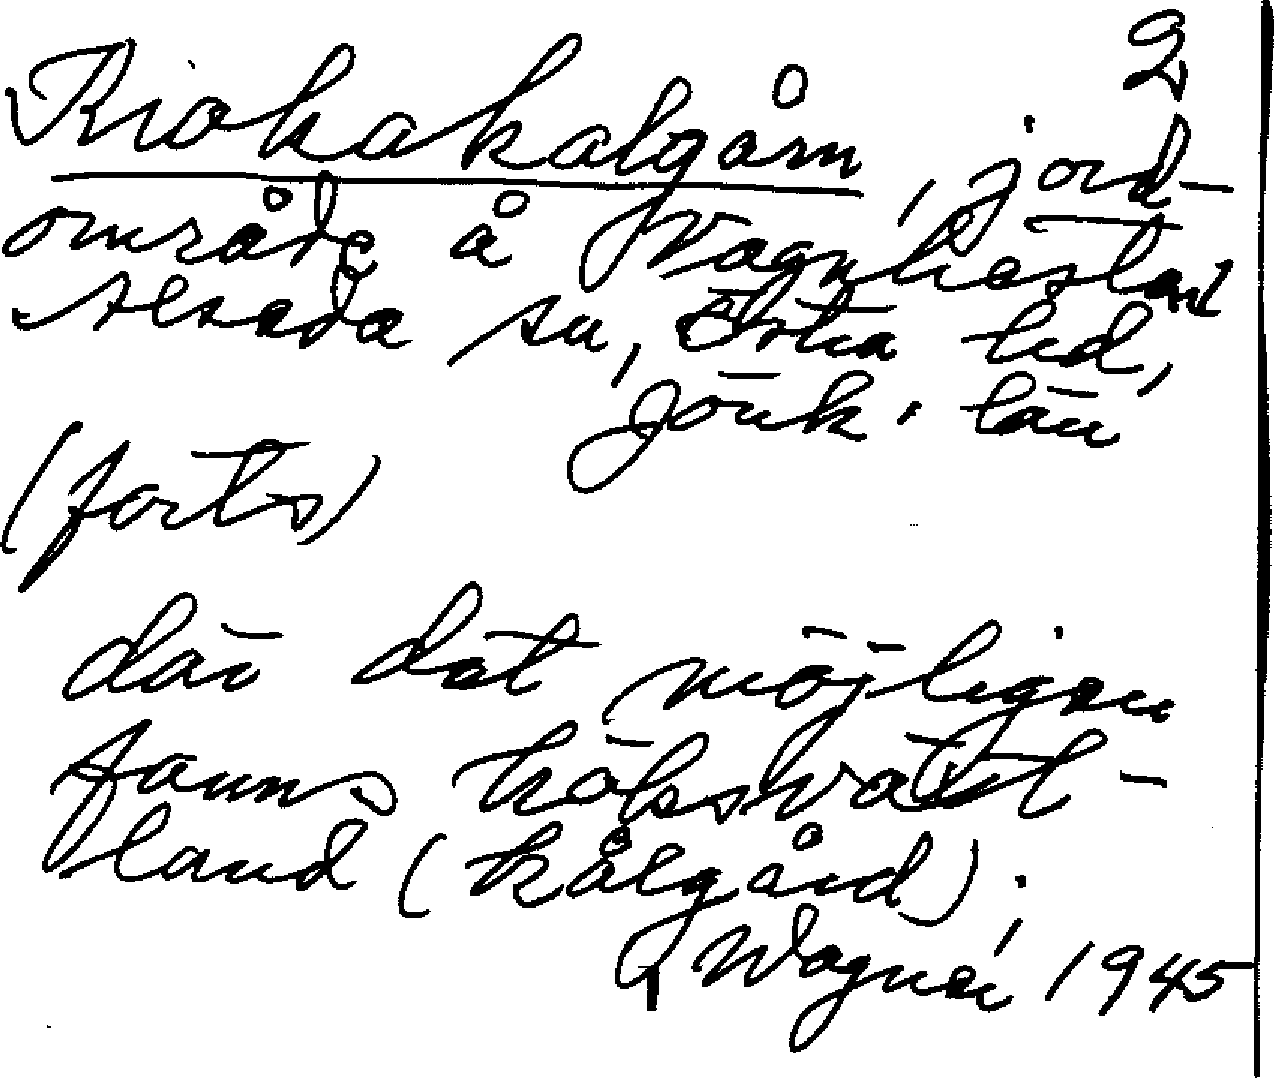 2
Kiokakalgårn, jord-
område å Vagnhester
Alseda sn, Östra hd,
Jönk. län
(forts)
där det möjligen
fanns köksväxt-
land (kålgård).
Wagner, 1945